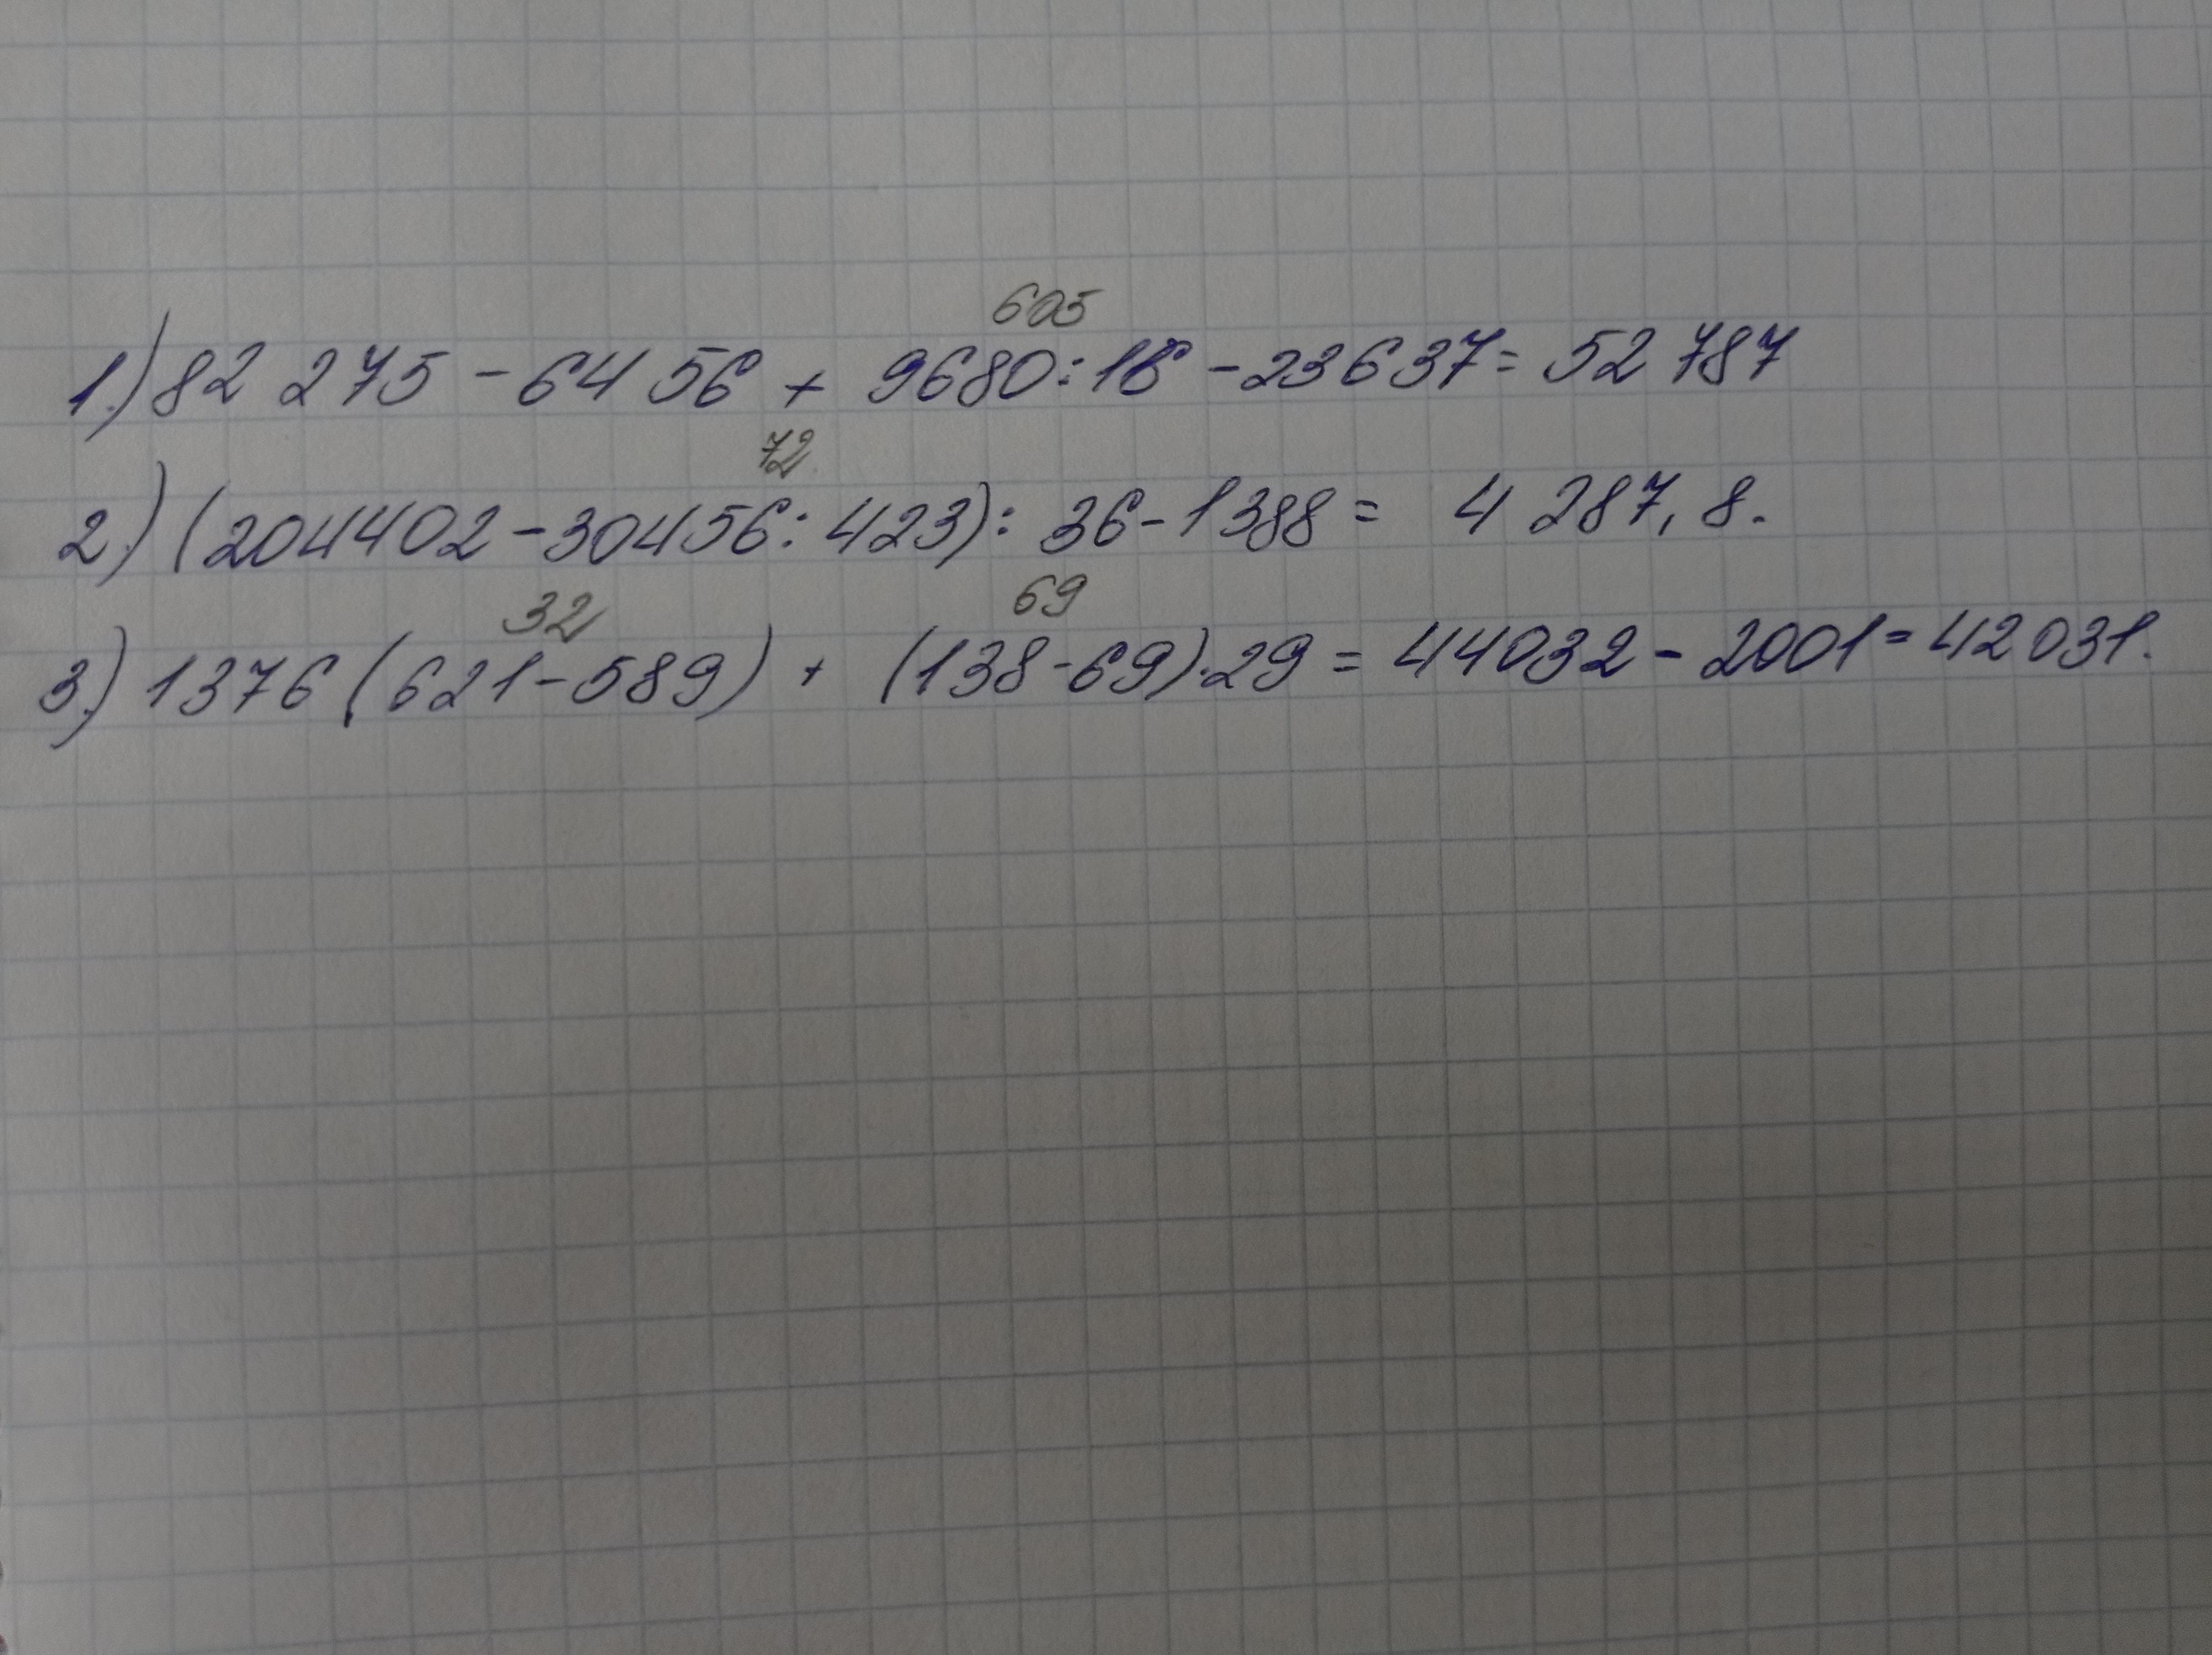 605
1.) 82 275 - 64 56 + 9680 : 16 - 23637 = 52 787
72
2.) (204402 - 30456 : 423) : 36 - 1388 = 4 287, 8.
32 69
3.) 1376 (621 - 589) + (138 - 69) · 29 = 44032 - 2001 = 42031.